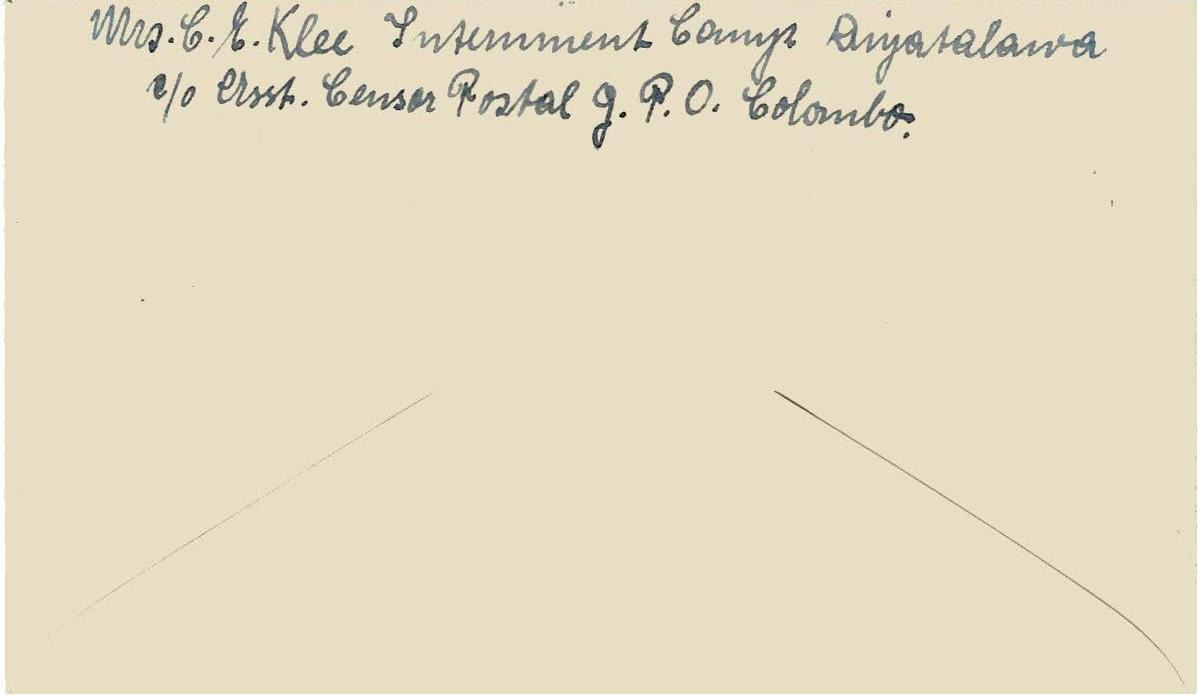 Mrs. C. E. Klee Internment Camp Diyatalawa
c/o Asst. Censor Postal G. P. O. Colombo.